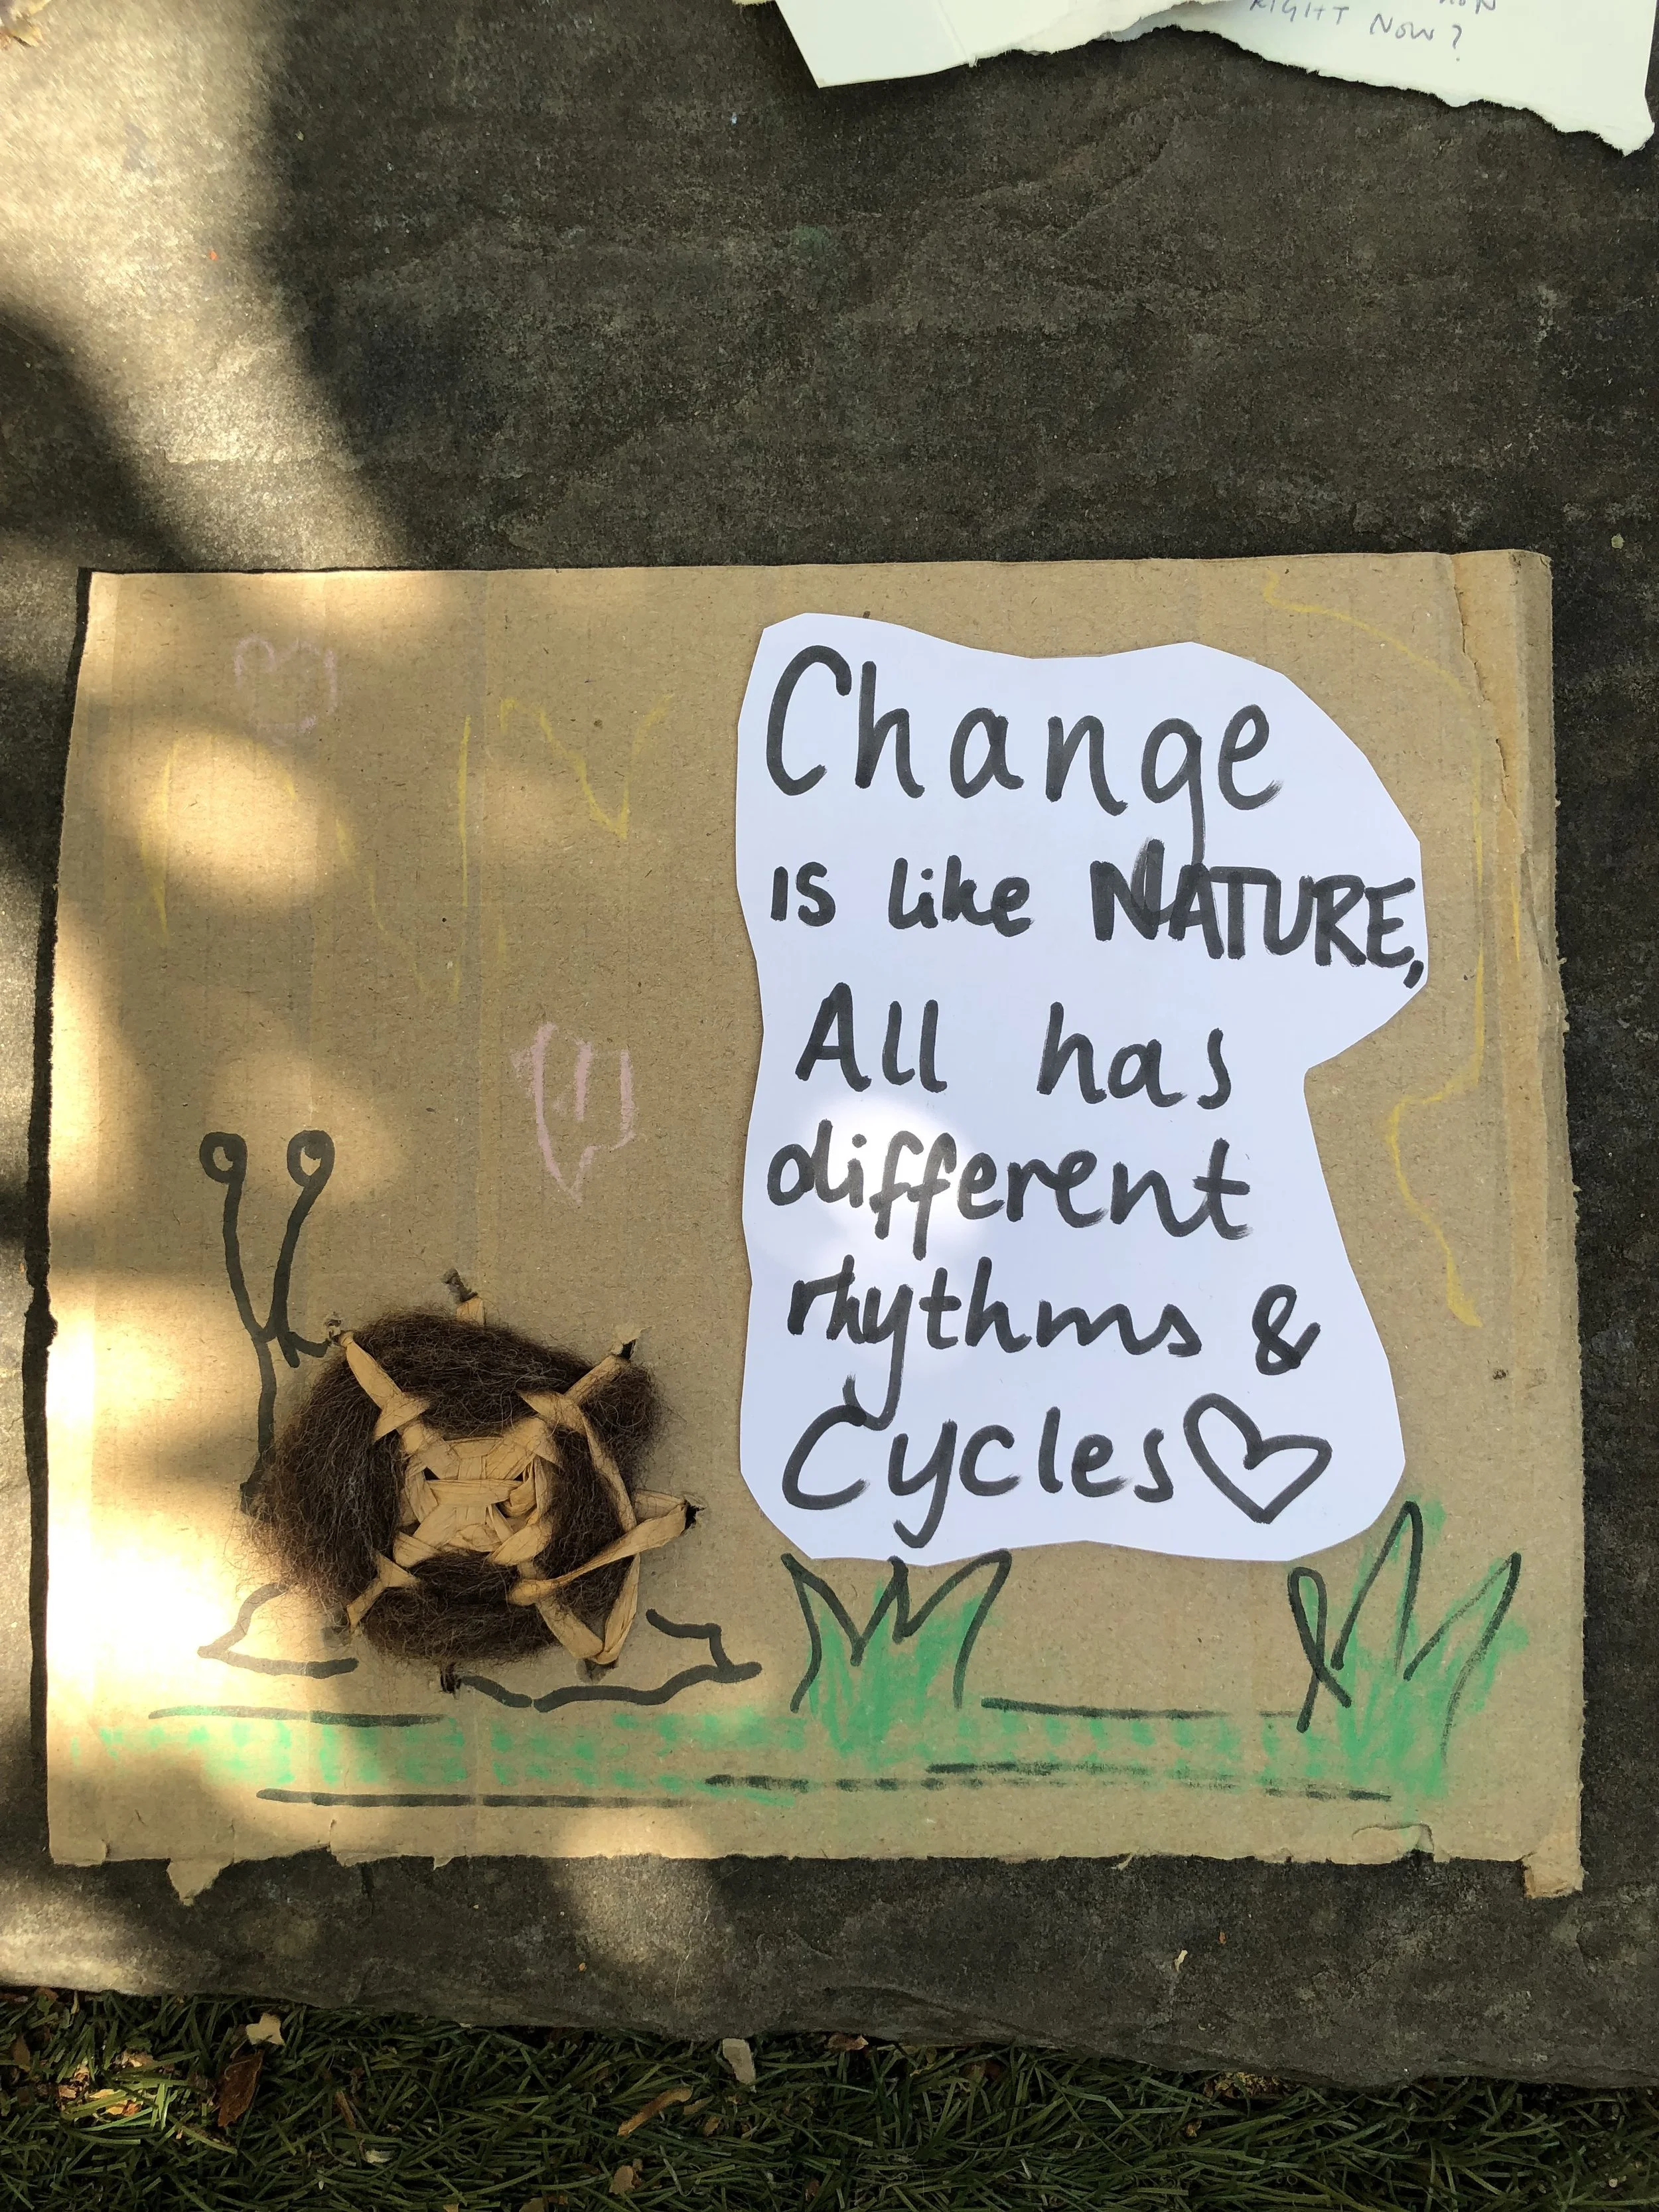 RIGHT NOW?
Change
is like NATURE,
All has
different
rhythms &
Cycles